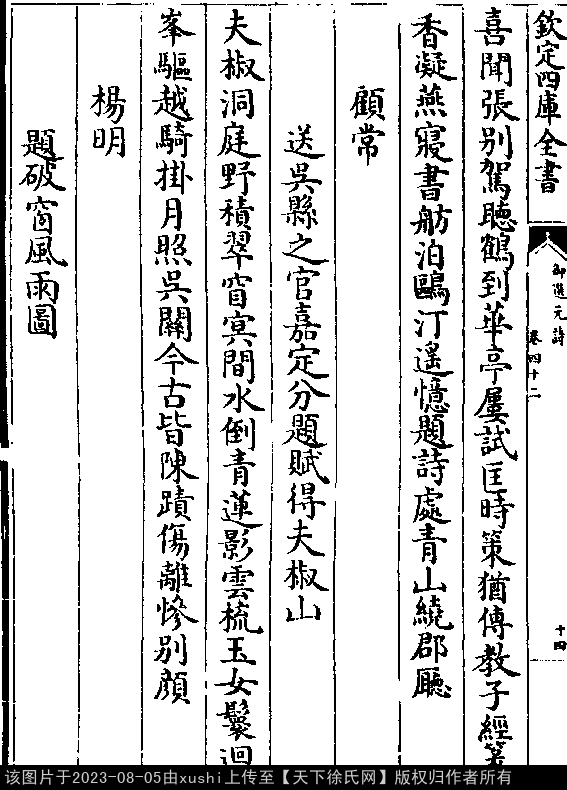 欽定四庫全書
御選元詩
卷四十二
十四
喜聞張别駕聽鶴到華亭屢試匡時策猶傳教子經
香凝燕寢書舫泊鷗汀遥憶題詩處青山繞郡廳
顧常
送吳縣之官嘉定分題賦得夫椒山
夫椒洞庭野積翠窅冥間水倒青蓮影雲梳玉女鬟迴
峯驅越騎掛月照吳關今古皆陳蹟傷離慘别顔
楊明
題破窗風雨圖
该图片于2023-08-05由xushi上传至【天下徐氏网】版权归作者所有